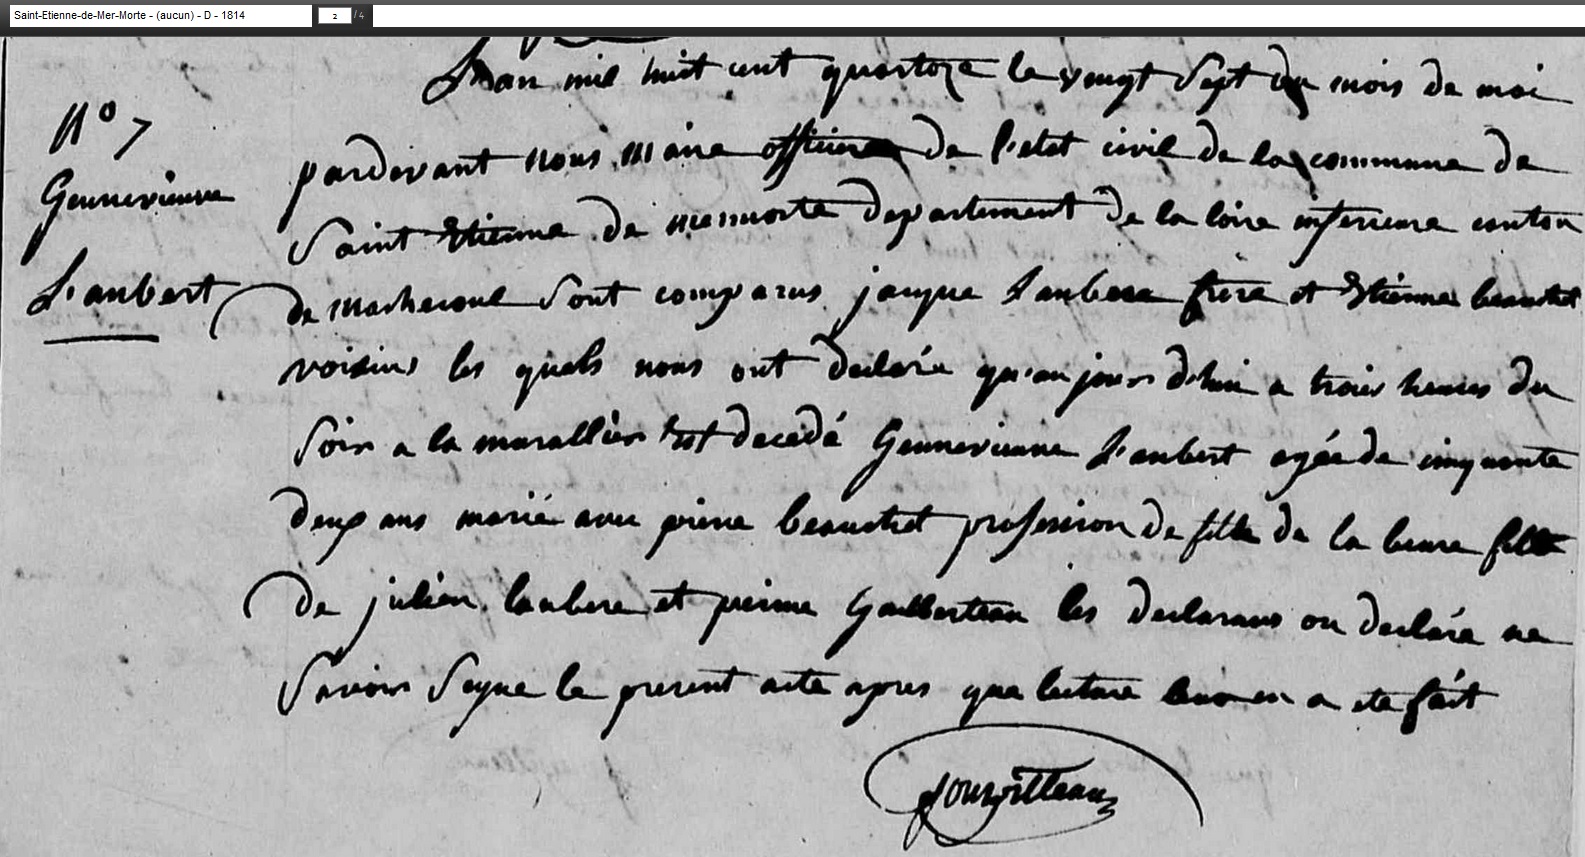 Saint-Etienne-de-Mer-Morte - (aucun) - D - 1814
2 / 4
L'an mil huit cent quartoze le vengt sept du mois de mai
N° 7
pardevant nous maire officier de l'etat civil de la commune de
Gennevieuve
Saint Etienne de mermorte departement de la loire inferieure conton
L'aubert
de machecoul sont comparus jacque Laubere frere et Etienne beauchet
voisins les quels nous ont declaré qu'au jour d'hui a trois heures du
soir a la marallier est decedé Gennevieuve L'aubert agée de cinquante
deux ans marié avec pierre beauchet profession de fille de la beure fille
de julien laubere et perinne Galberteau les declarans on declaré ne
savoir seyne le present acte apres que lecture leur en a ete fait